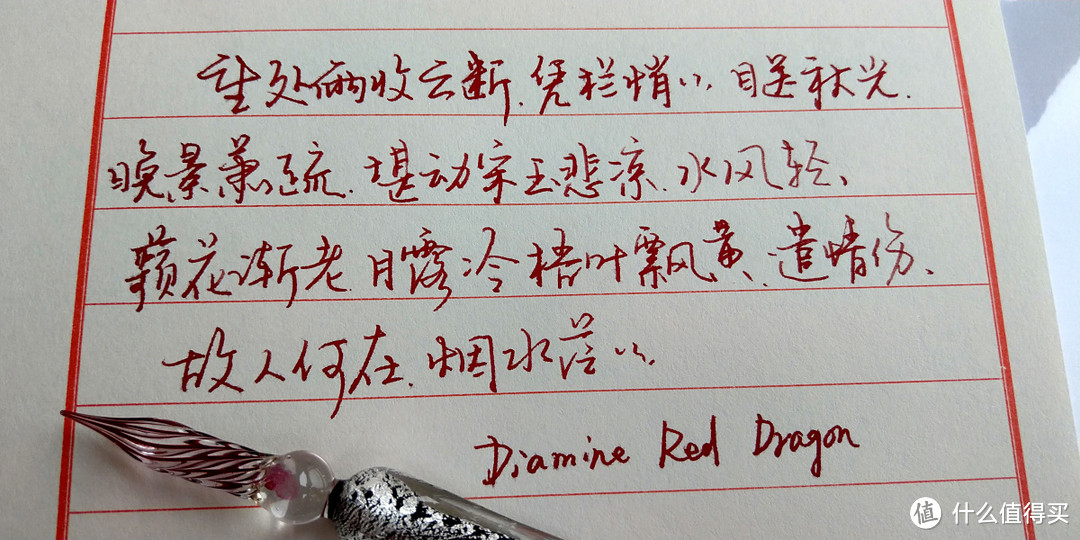 望处雨收云断.凭栏悄〃.目送秋光.
晚景萧疏.堪动宋玉悲凉.水风轻、
蘋花渐老.月露冷梧叶飘黄.遣情伤、
故人何在.烟水茫〃.
Diamine Red Dragon
值 什么值得买